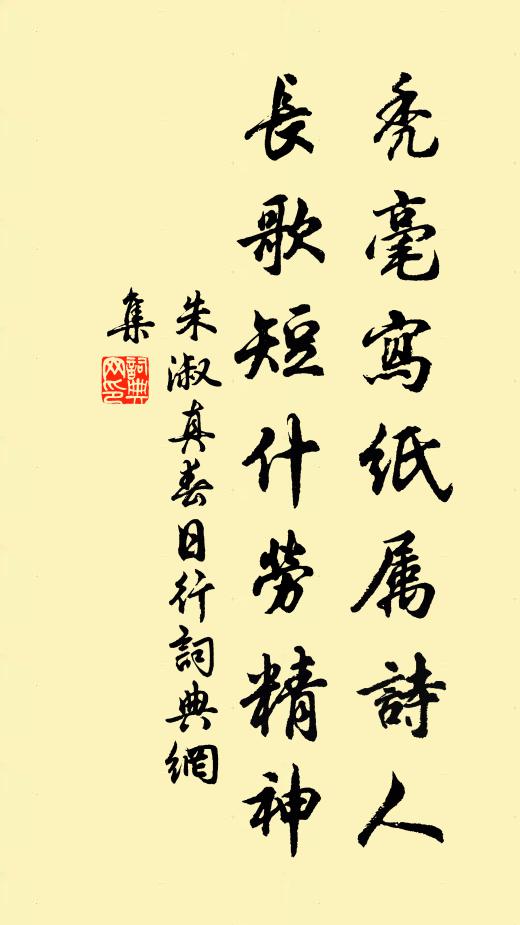 禿毫寫紙属詩人
長歌短什勞精神
朱淑真春日行詞典網
集
詞典网印